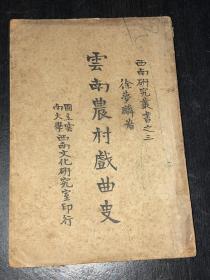 西南研究叢書之三
徐夢麟著
雲南農村戲曲史
國立雲南大學西南文化研究室印行